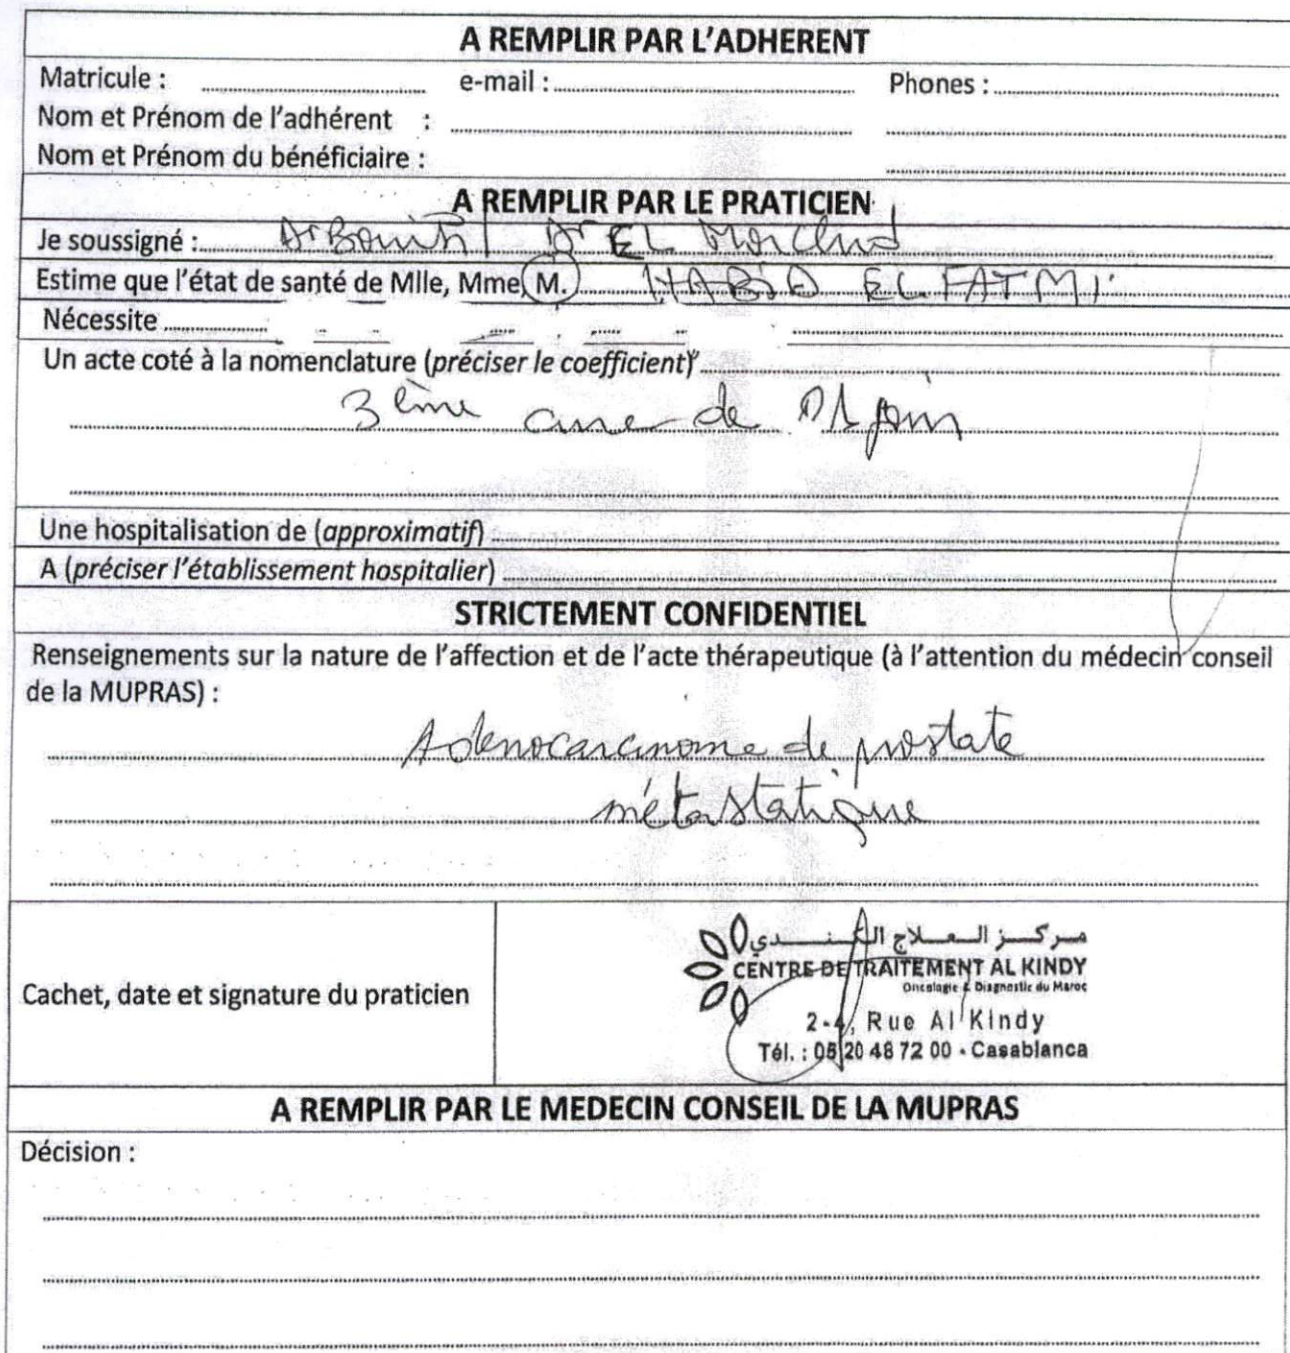 A REMPLIR PAR L'ADHERENT
Matricule : e-mail : Phones :
Nom et Prénom de l'adhérent :
Nom et Prénom du bénéficiaire :
A REMPLIR PAR LE PRATICIEN
Je soussigné : Dr / Dr EL
Estime que l'état de santé de Mlle, Mme, M. HABIB EL FATMI
Nécessite
Un acte coté à la nomenclature (préciser le coefficient)
3ème cure de
Une hospitalisation de (approximatif)
A (préciser l'établissement hospitalier)
STRICTEMENT CONFIDENTIEL
Renseignements sur la nature de l'affection et de l'acte thérapeutique (à l'attention du médecin conseil
de la MUPRAS) :
Adenocarcinome de prostate
métastatique
مركز العلاج الكندي
CENTRE DE TRAITEMENT AL KINDY
Oncologie & Diagnostic du Maroc
Cachet, date et signature du praticien
2-4, Rue Al Kindy
Tél. : 05 20 48 72 00 - Casablanca
A REMPLIR PAR LE MEDECIN CONSEIL DE LA MUPRAS
Décision :